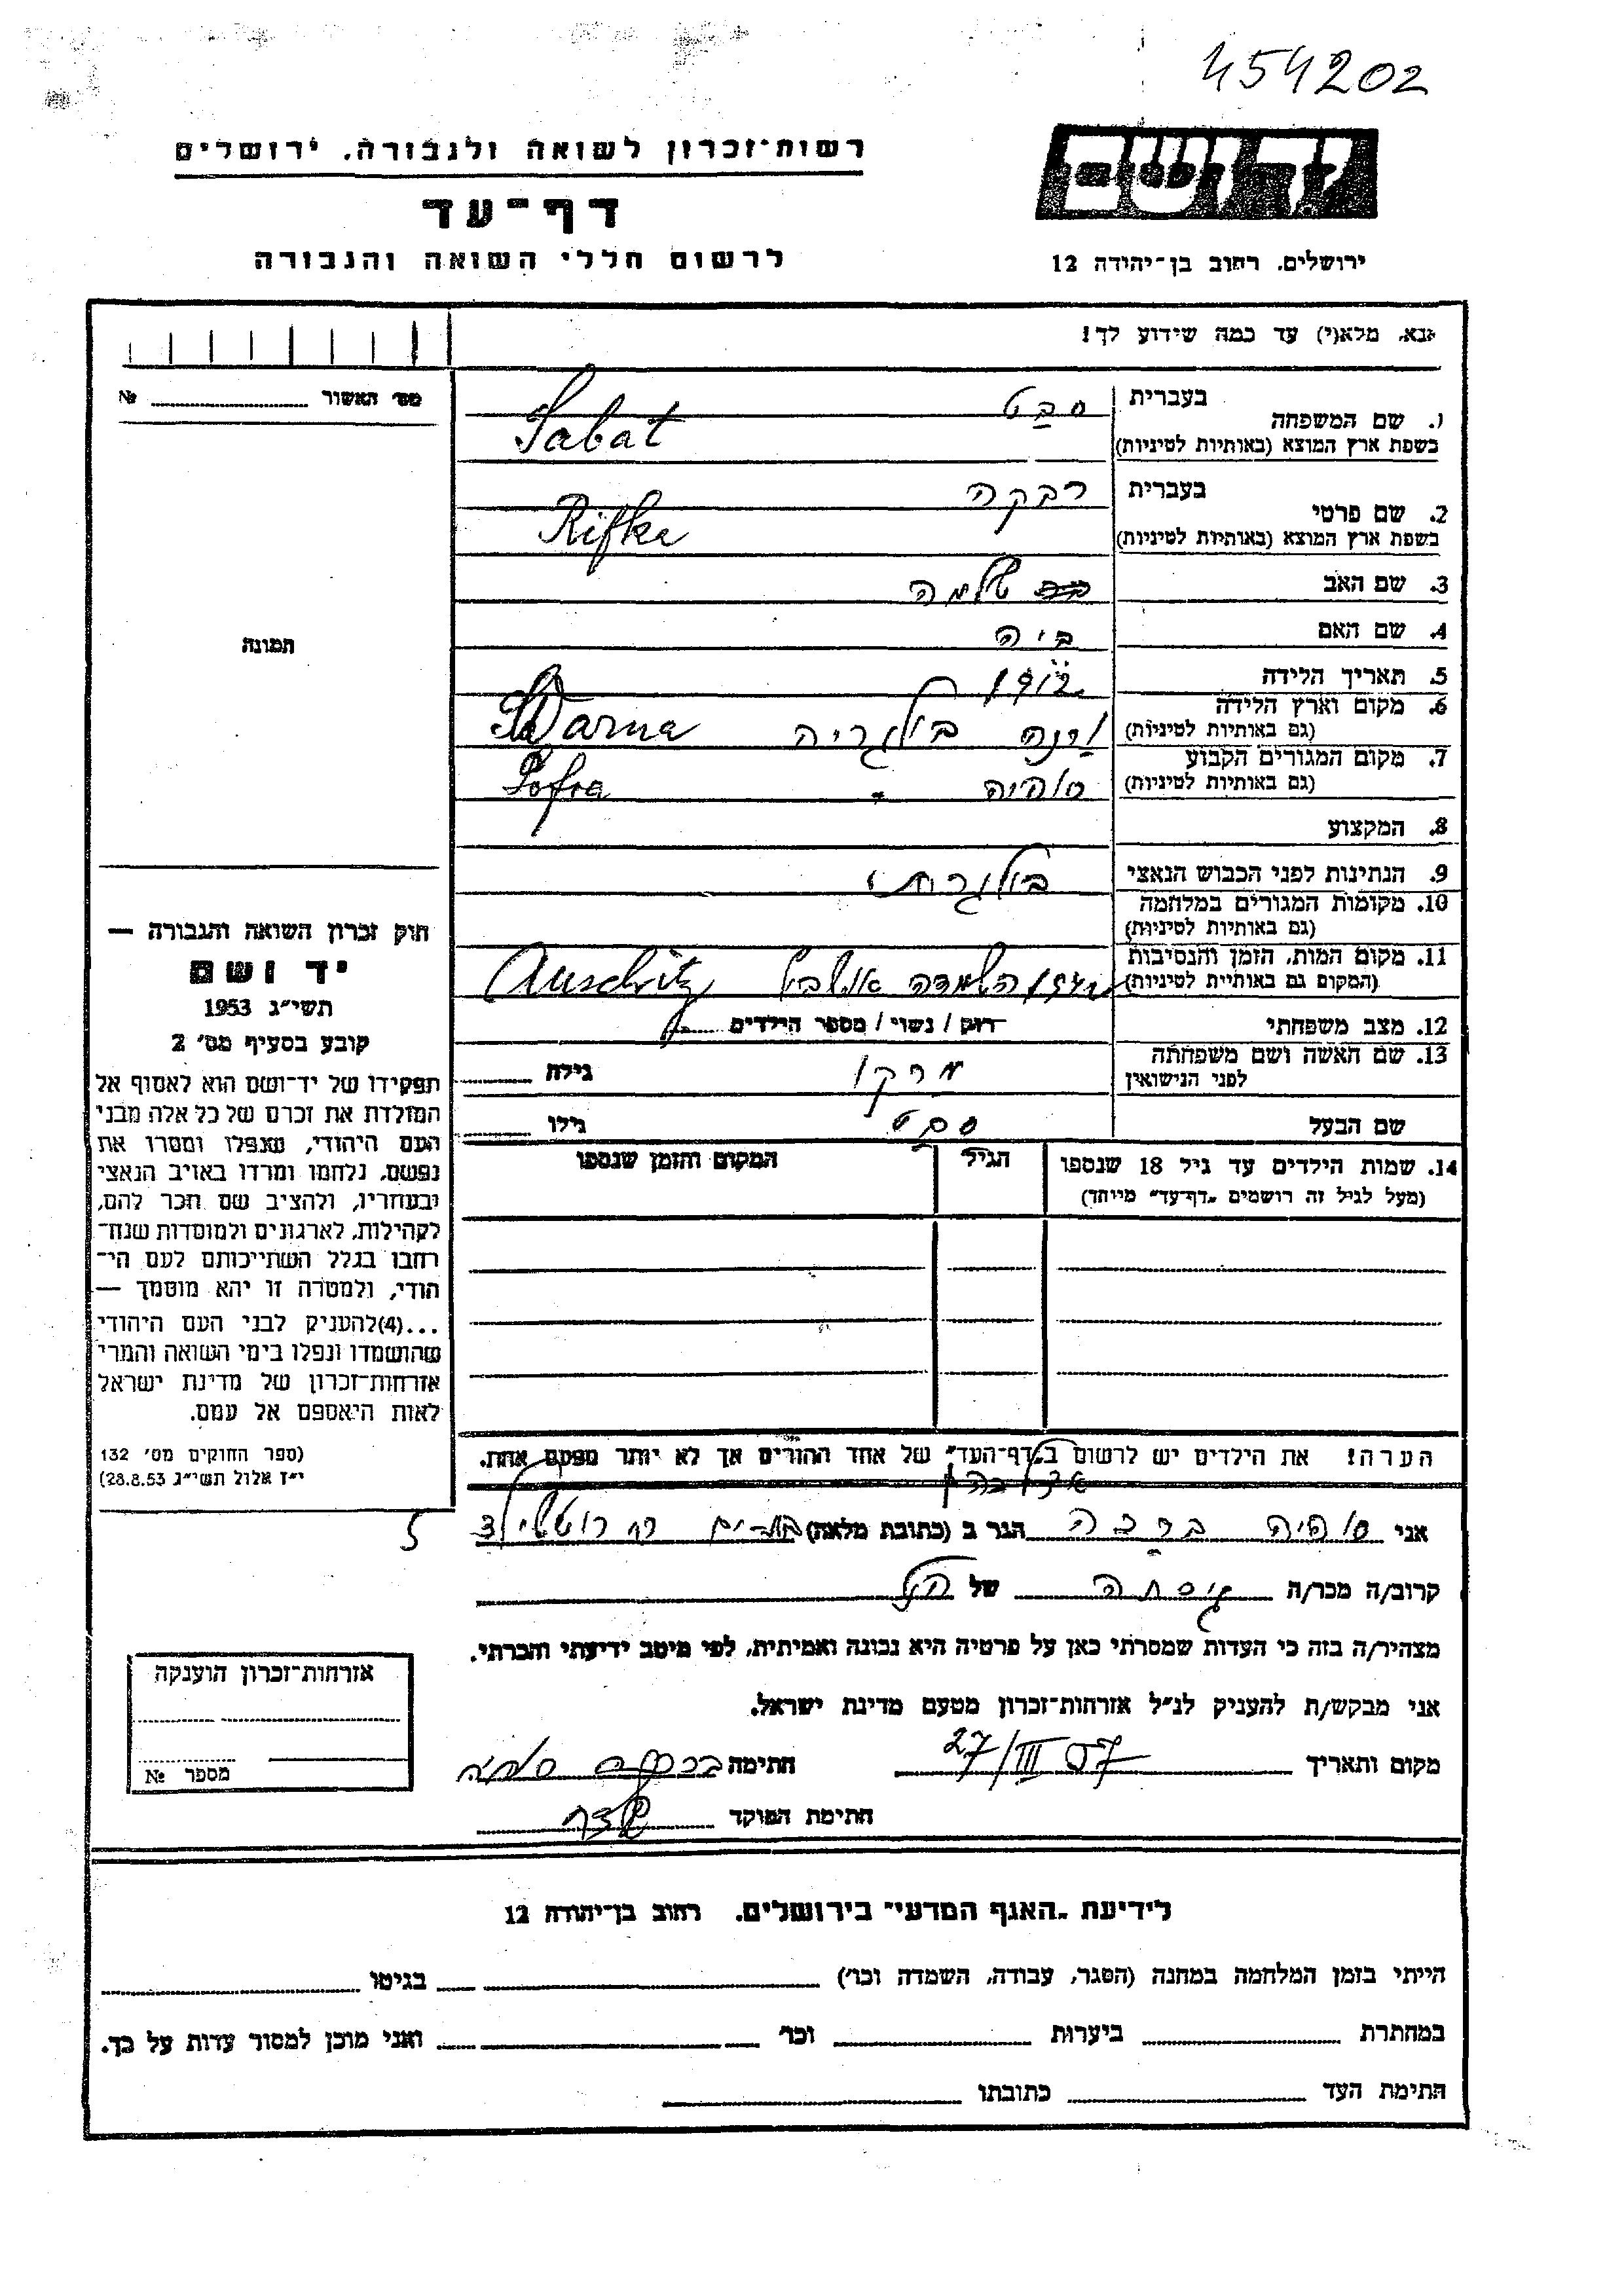 454202
רשות־זכרון לשואה ולגבורה, ירושלים
דף־עד
לרשום חללי השואה והגבורה
ידושם
ירושלים, רחוב בן־יהודה 12
נא, מלא(י) עד כמה שידוע לך!
מס׳ האשור № 
1. שם המשפחה בעברית סבט
בשפת ארץ המוצא (באותיות לטיניות) Sabat
2. שם פרטי בעברית רבקה
בשפת ארץ המוצא (באותיות לטיניות) Rifka
3. שם האב שלמה
4. שם האם
תמונה
5. תאריך הלידה
6. מקום וארץ הלידה (גם באותיות לטיניות) ורנה בולגריה Warna
7. מקום המגורים הקבוע (גם באותיות לטיניות) סופיה " Sofia
8. המקצוע
9. הנתינות לפני הכבוש הנאצי בולגרית
10. מקומות המגורים במלחמה (גם באותיות לטיניות)
11. מקום המות, הזמן והנסיבות (המקום גם באותיות לטיניות) Auschwitz
12. מצב משפחתי רווק / נשוי / מספר הילדים
13. שם האשה ושם משפחתה לפני הנישואין מרקו גילה
שם הבעל סבט גילו
14. שמות הילדים עד גיל 18 שנספו הגיל המקום והזמן שנספו
(מעל לגיל זה רושמים „דף־עד" מיוחד)
הערה! את הילדים יש לרשום ב„דף־העד" של אחד ההורים אך לא יותר מפעם אחת.
חוק זכרון השואה והגבורה —
יד ושם
תשי״ג 1953
קובע בסעיף מס׳ 2
תפקידו של יד־ושם הוא לאסוף אל
המולדת את זכרם של כל אלה מבני
העם היהודי, שנפלו ומסרו את
נפשם, נלחמו ומרדו באויב הנאצי
ובעוזריו, ולהציב שם וזכר להם,
לקהילות, לארגונים ולמוסדות שנח־
רבו בגלל השתייכותם לעם הי־
הודי, ולמטרה זו יהא מוסמך —
...(4)להעניק לבני העם היהודי
שהושמדו ונפלו בימי השואה והמרי
אזרחות־זכרון של מדינת ישראל
לאות היאספם אל עמם.
(ספר החוקים מס׳ 132
י״ז אלול תשי״ג 28.8.53)
אני סופיה ברכה הגר ב (כתובת מלאה) בת־ים רח רוטשילד 5
קרוב/ה מכר/ה גיסתה של הנ״ל
מצהיר/ה בזה כי העדות שמסרתי כאן על פרטיה היא נכונה ואמיתית, לפי מיטב ידיעתי והכרתי.
אני מבקש/ת להעניק לנ״ל אזרחות־זכרון מטעם מדינת ישראל.
מקום ותאריך 27/III 57 חתימה ברכה סופיה
חתימת הפוקד
אזרחות־זכרון הוענקה
מספר №
לידיעת „האגף המדעי" בירושלים, רחוב בן־יהודה 12
הייתי בזמן המלחמה במחנה (הסגר, עבודה, השמדה וכו׳) בגיטו
במחתרת ביערות וכו׳ ואני מוכן למסור עדות על כך.
חתימת העד כתובתו